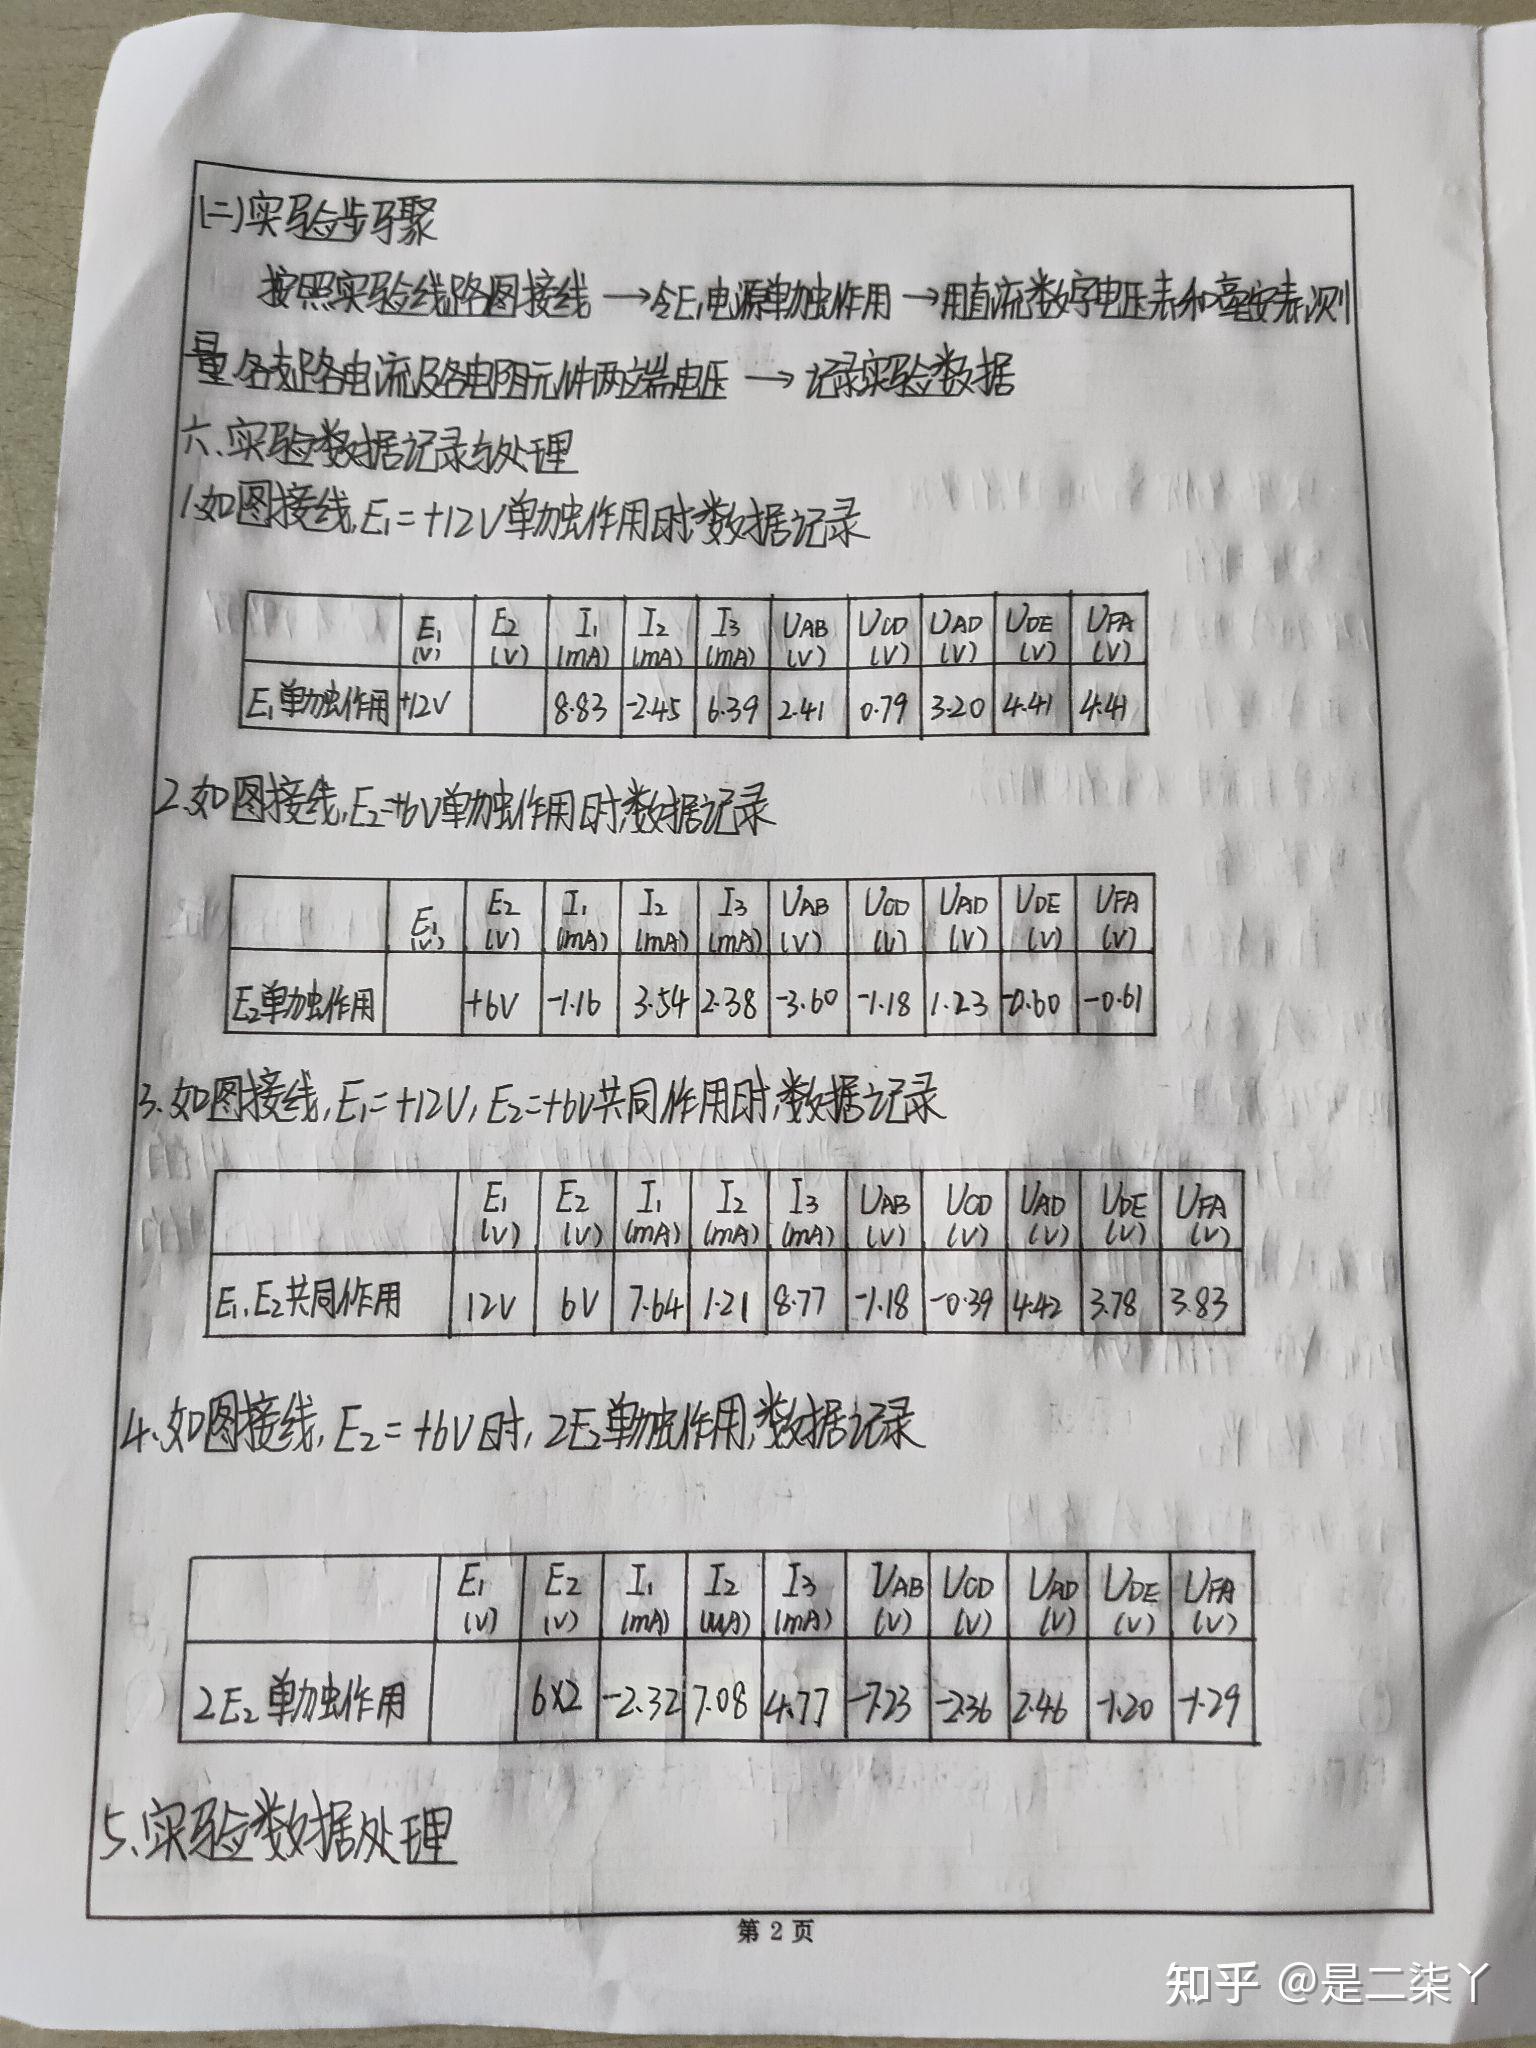 (二)实验步骤
按照实验线路图接线→令E₁电源单独作用→用直流数字电压表和毫安表,测
量各支路电流及各电阻元件两端电压→记录实验数据
六、实验数据记录与处理
1.如图接线,E₁=+12V单独作用时数据记录
E₁(V) E₂(V) I₁(mA) I₂(mA) I₃(mA) UAB(V) UCD(V) UAD(V) UDE(V) UFA(V)
E₁单独作用 +12V 8.83 -2.45 6.39 2.41 0.79 3.20 4.41 4.41
2.如图接线,E₂=+6V单独作用时数据记录
E₁(V) E₂(V) I₁(mA) I₂(mA) I₃(mA) UAB(V) UCD(V) UAD(V) UDE(V) UFA(V)
E₂单独作用 +6V -1.16 3.54 2.38 -3.60 -1.18 1.23 -0.60 -0.61
3.如图接线,E₁=+12V,E₂=+6V共同作用时,数据记录
E₁(V) E₂(V) I₁(mA) I₂(mA) I₃(mA) UAB(V) UCD(V) UAD(V) UDE(V) UFA(V)
E₁、E₂共同作用 12V 6V 7.64 1.21 8.77 -1.18 -0.39 4.42 3.78 3.83
4.如图接线,E₂=+6V时,2E₂单独作用,数据记录
E₁(V) E₂(V) I₁(mA) I₂(mA) I₃(mA) UAB(V) UCD(V) UAD(V) UDE(V) UFA(V)
2E₂单独作用 6×2 -2.32 7.08 4.77 -7.23 -2.36 2.46 -1.20 -1.29
5、实验数据处理
第 2 页
知乎 @是二柒丫